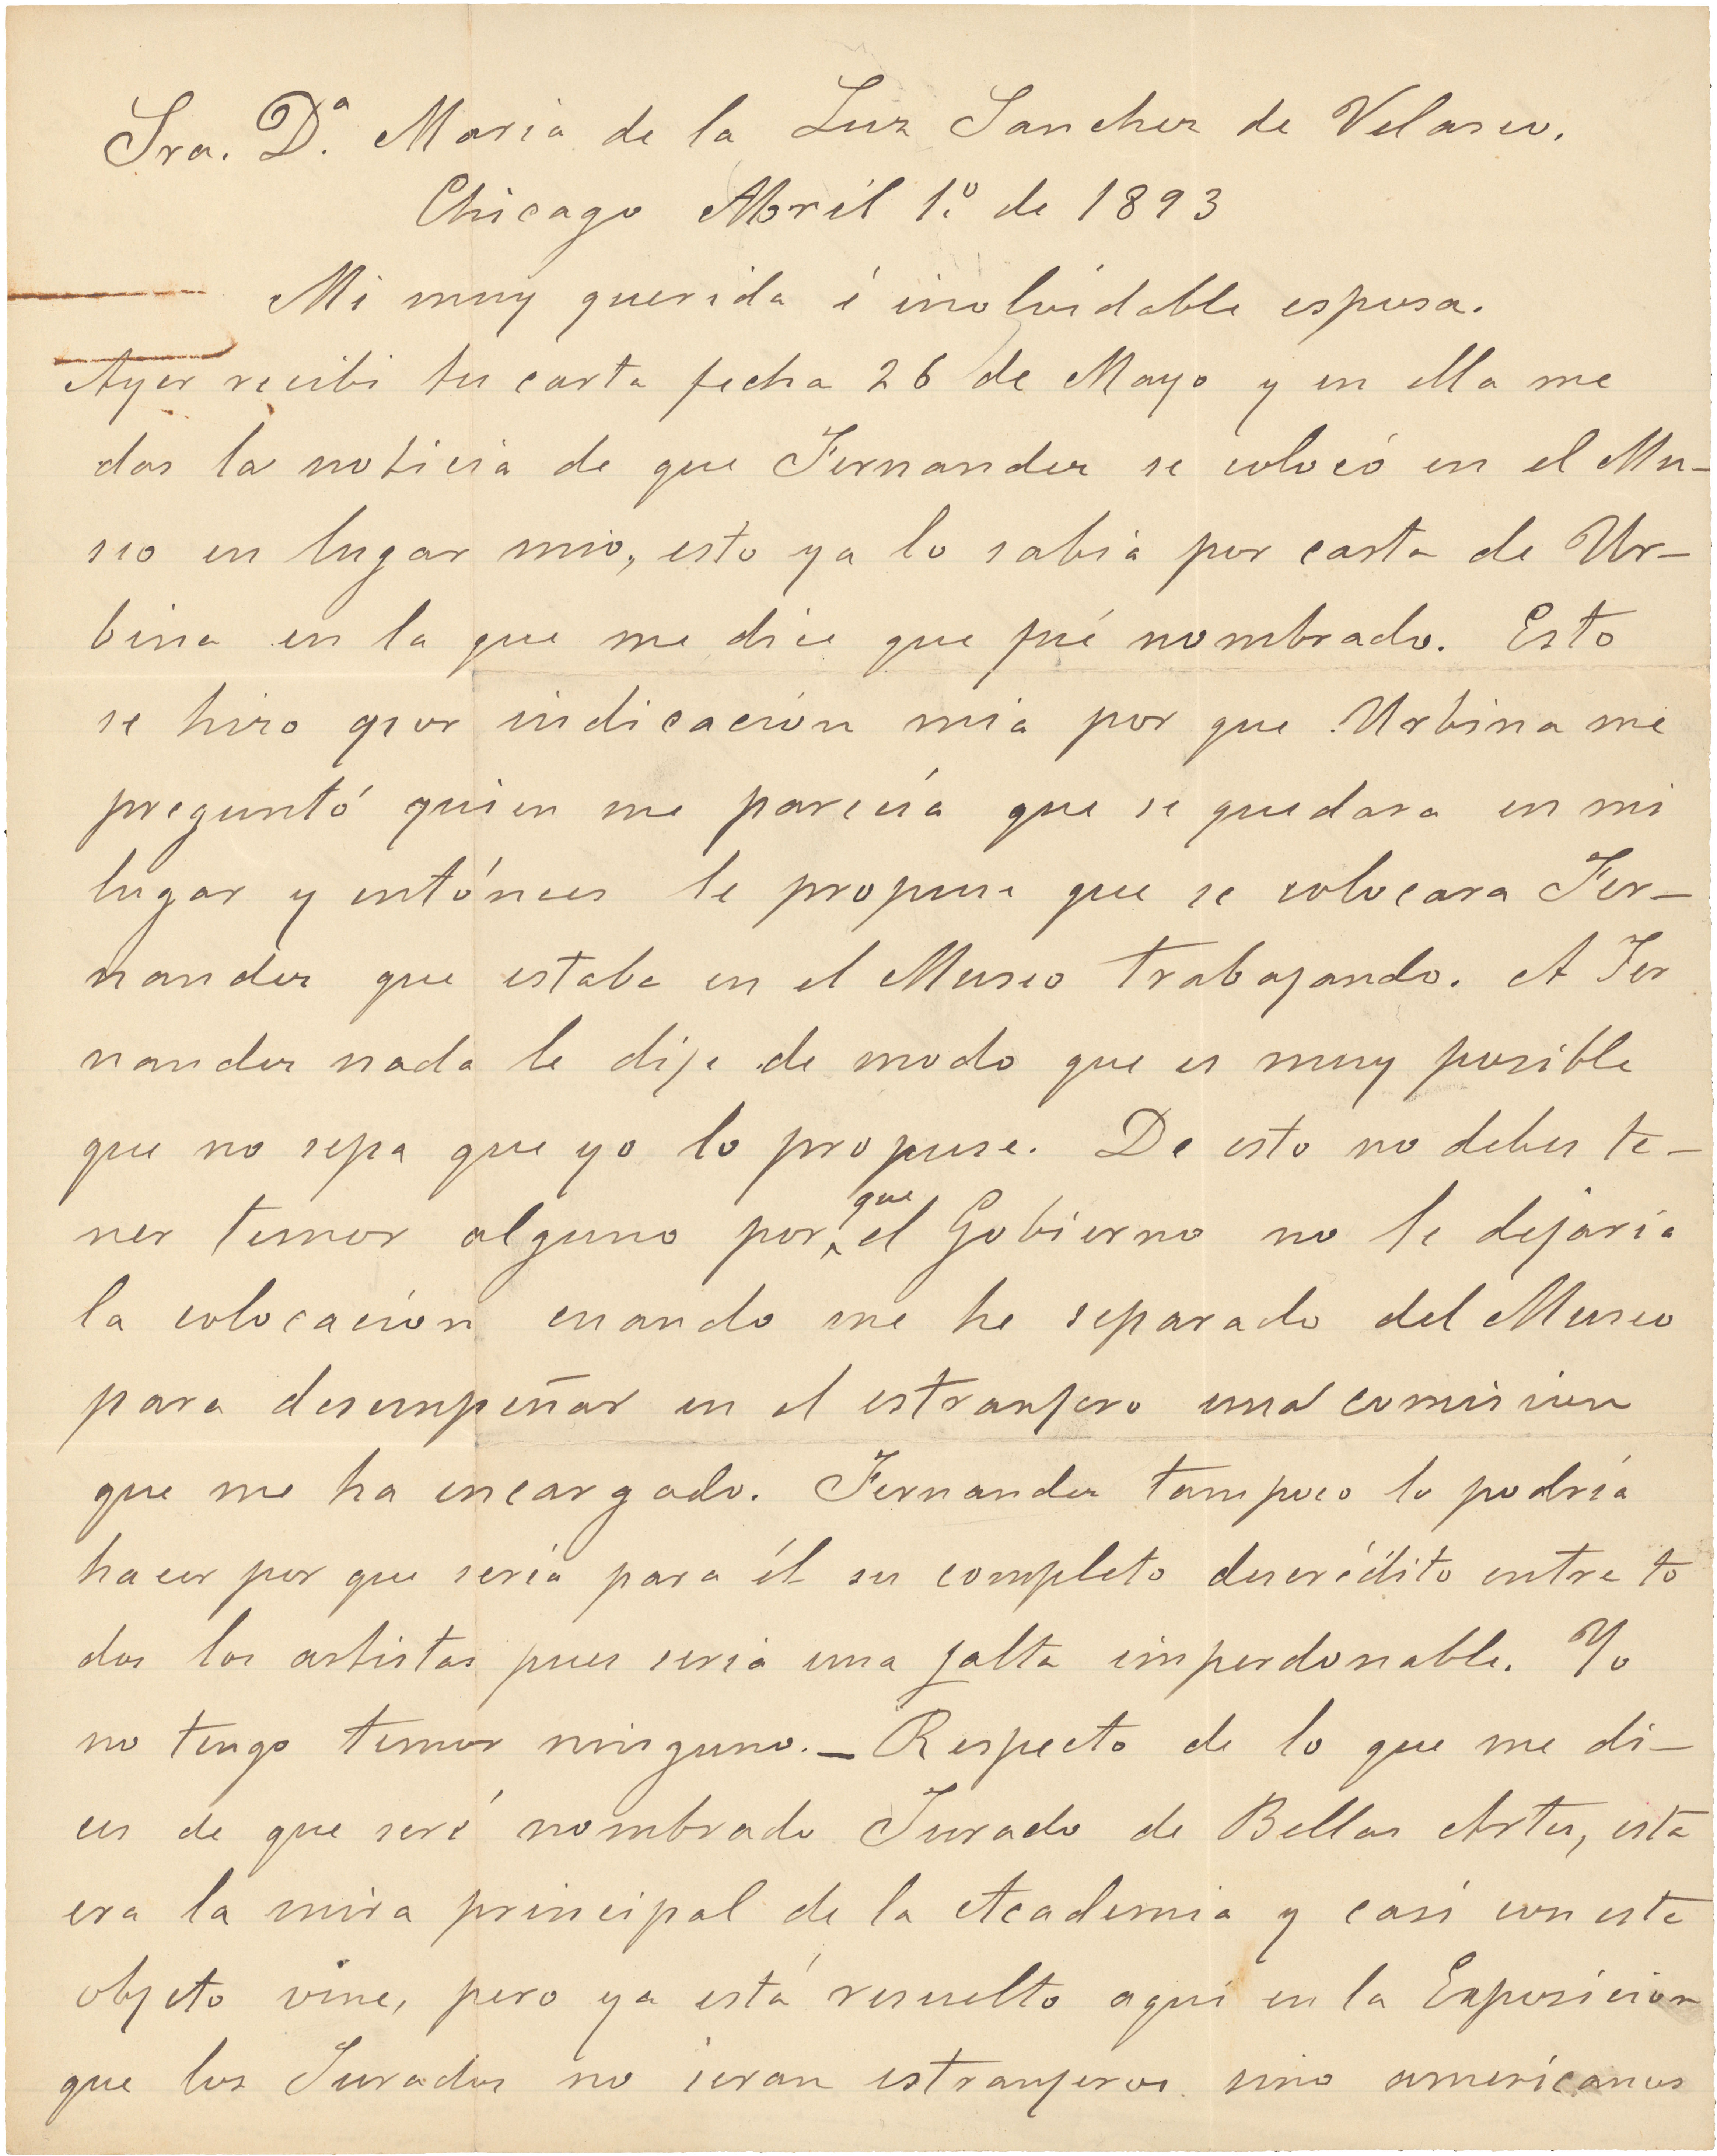 Sra. D.ª Maria de la Luz Sanchez de Velasco.
Chicago Abril 1.º de 1893
Mi muy querida é inolvidable esposa.
Ayer recibi tu carta fecha 26 de Mayo y en ella me
das la noticia de que Fernandez se colocó en el Mu-
seo en lugar mio, esto ya lo sabia por carta de Ur-
bina en la que me dice que fué nombrado. Esto
se hizo por indicación mia por que Urbina me
preguntó quien me parecía que se quedara en mi
lugar y entónces le propuse que se colocara Fer-
nandez que estaba en el Museo trabajando. A Fer
nandez nada le dije de modo que es muy posible
que no sepa que yo lo propuse. De esto no debes te-
ner temor alguno por que el Gobierno no le dejaria
la colocación cuando me he separado del Museo
para desempeñar en el estranjero una comision
que me ha encargado. Fernandez tampoco lo podría
hacer por que sería para él su completo descrédito entre to
dos los artistas pues seria una falta imperdonable. Yo
no tengo temor ninguno. — Respecto de lo que me di-
ces de que seré nombrado Jurado de Bellas Artes, esta
era la mira principal de la Academia y casi con este
objeto vine, pero ya está resuelto aqui en la Exposicion
que los Jurados no seran estranjeros sino americanos